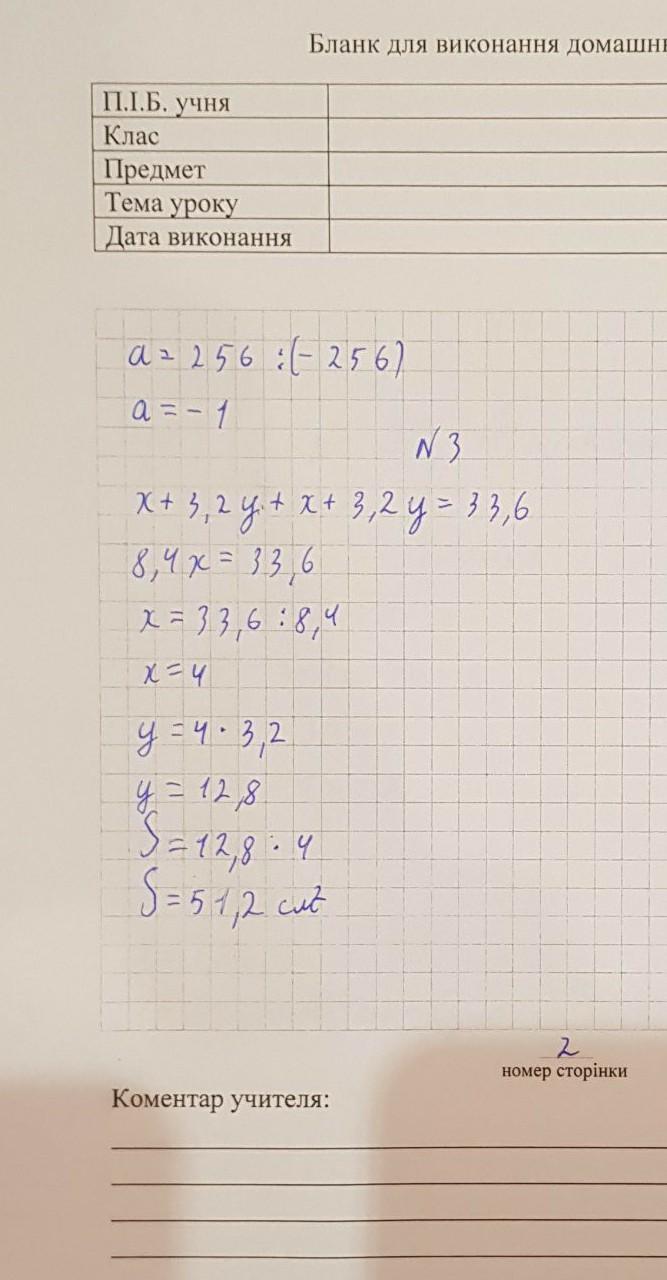 Бланк для виконання домашн
П.І.Б. учня
Клас
Предмет
Тема уроку
Дата виконання
a = 256 :(- 256)
a = - 1
N 3
x + 3,2 y + x + 3,2 y = 33,6
8,4 x = 33,6
x = 33,6 : 8,4
x = 4
y = 4 · 3,2
y = 12,8
S = 12,8 · 4
S = 51,2 см²
2
номер сторінки
Коментар учителя: